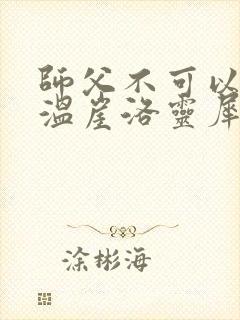 師父不可以
溫崖洛靈犀
涂彬海